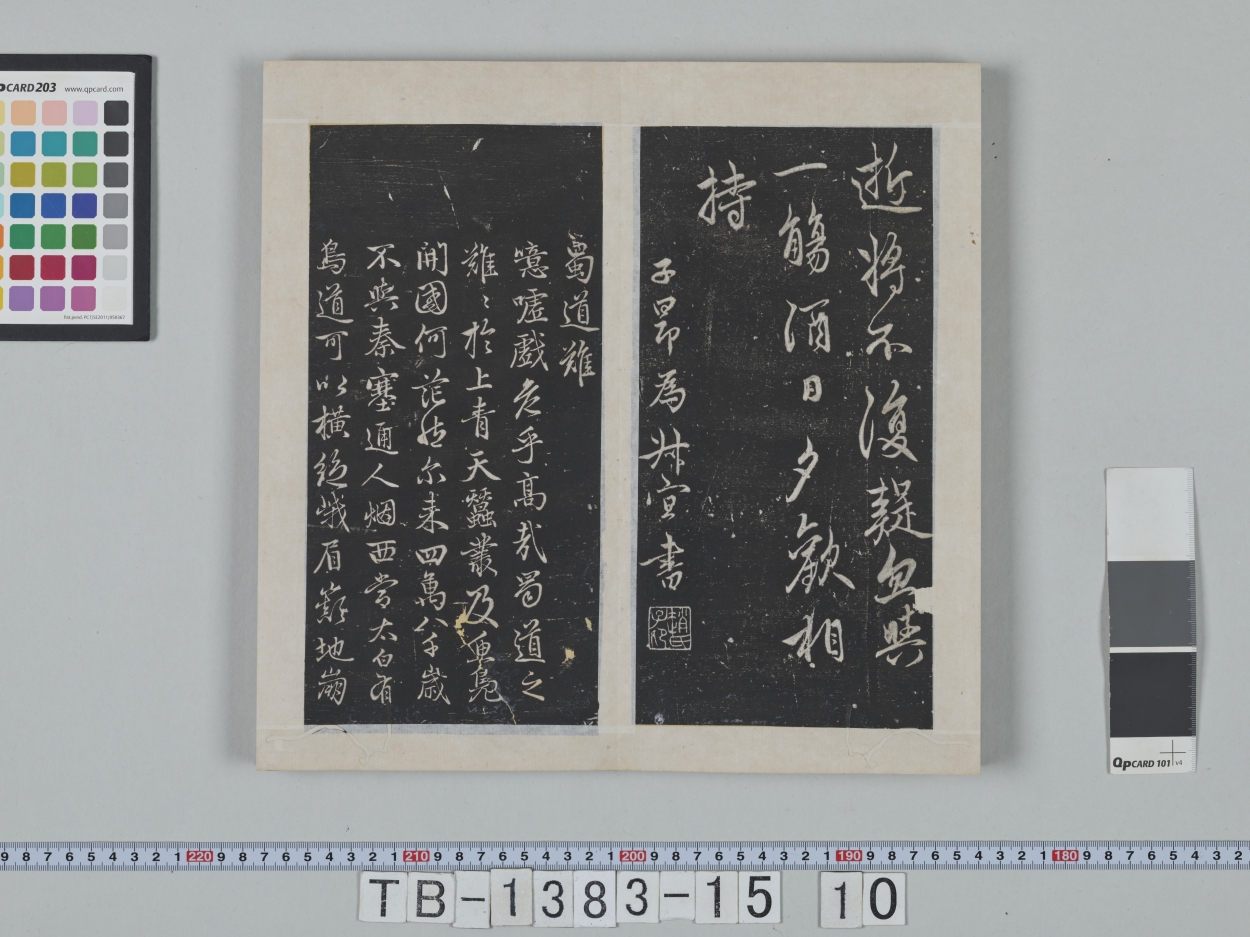 逝将不復疑忽與
一觴酒日夕歡相
持
子昂為叔宜書
趙氏子昂
蜀道難
噫嘘戲危乎高哉蜀道之
難〻於上青天蠶叢及魚鳧
開國何茫然尔来四萬八千歲
不與秦塞通人烟西當太白有
鳥道可以橫絶峨眉巔地崩
PCARD 203 www.qpcard.com
QPCARD 101 v4
9 8 7 6 5 4 3 2 1 220 9 8 7 6 5 4 3 2 1 210 9 8 7 6 5 4 3 2 1 200 9 8 7 6 5 4 3 2 1 190 9 8 7 6 5 4 3 2 1 180 9 8 7 6 5 4 3 2
TB-1383-15 10